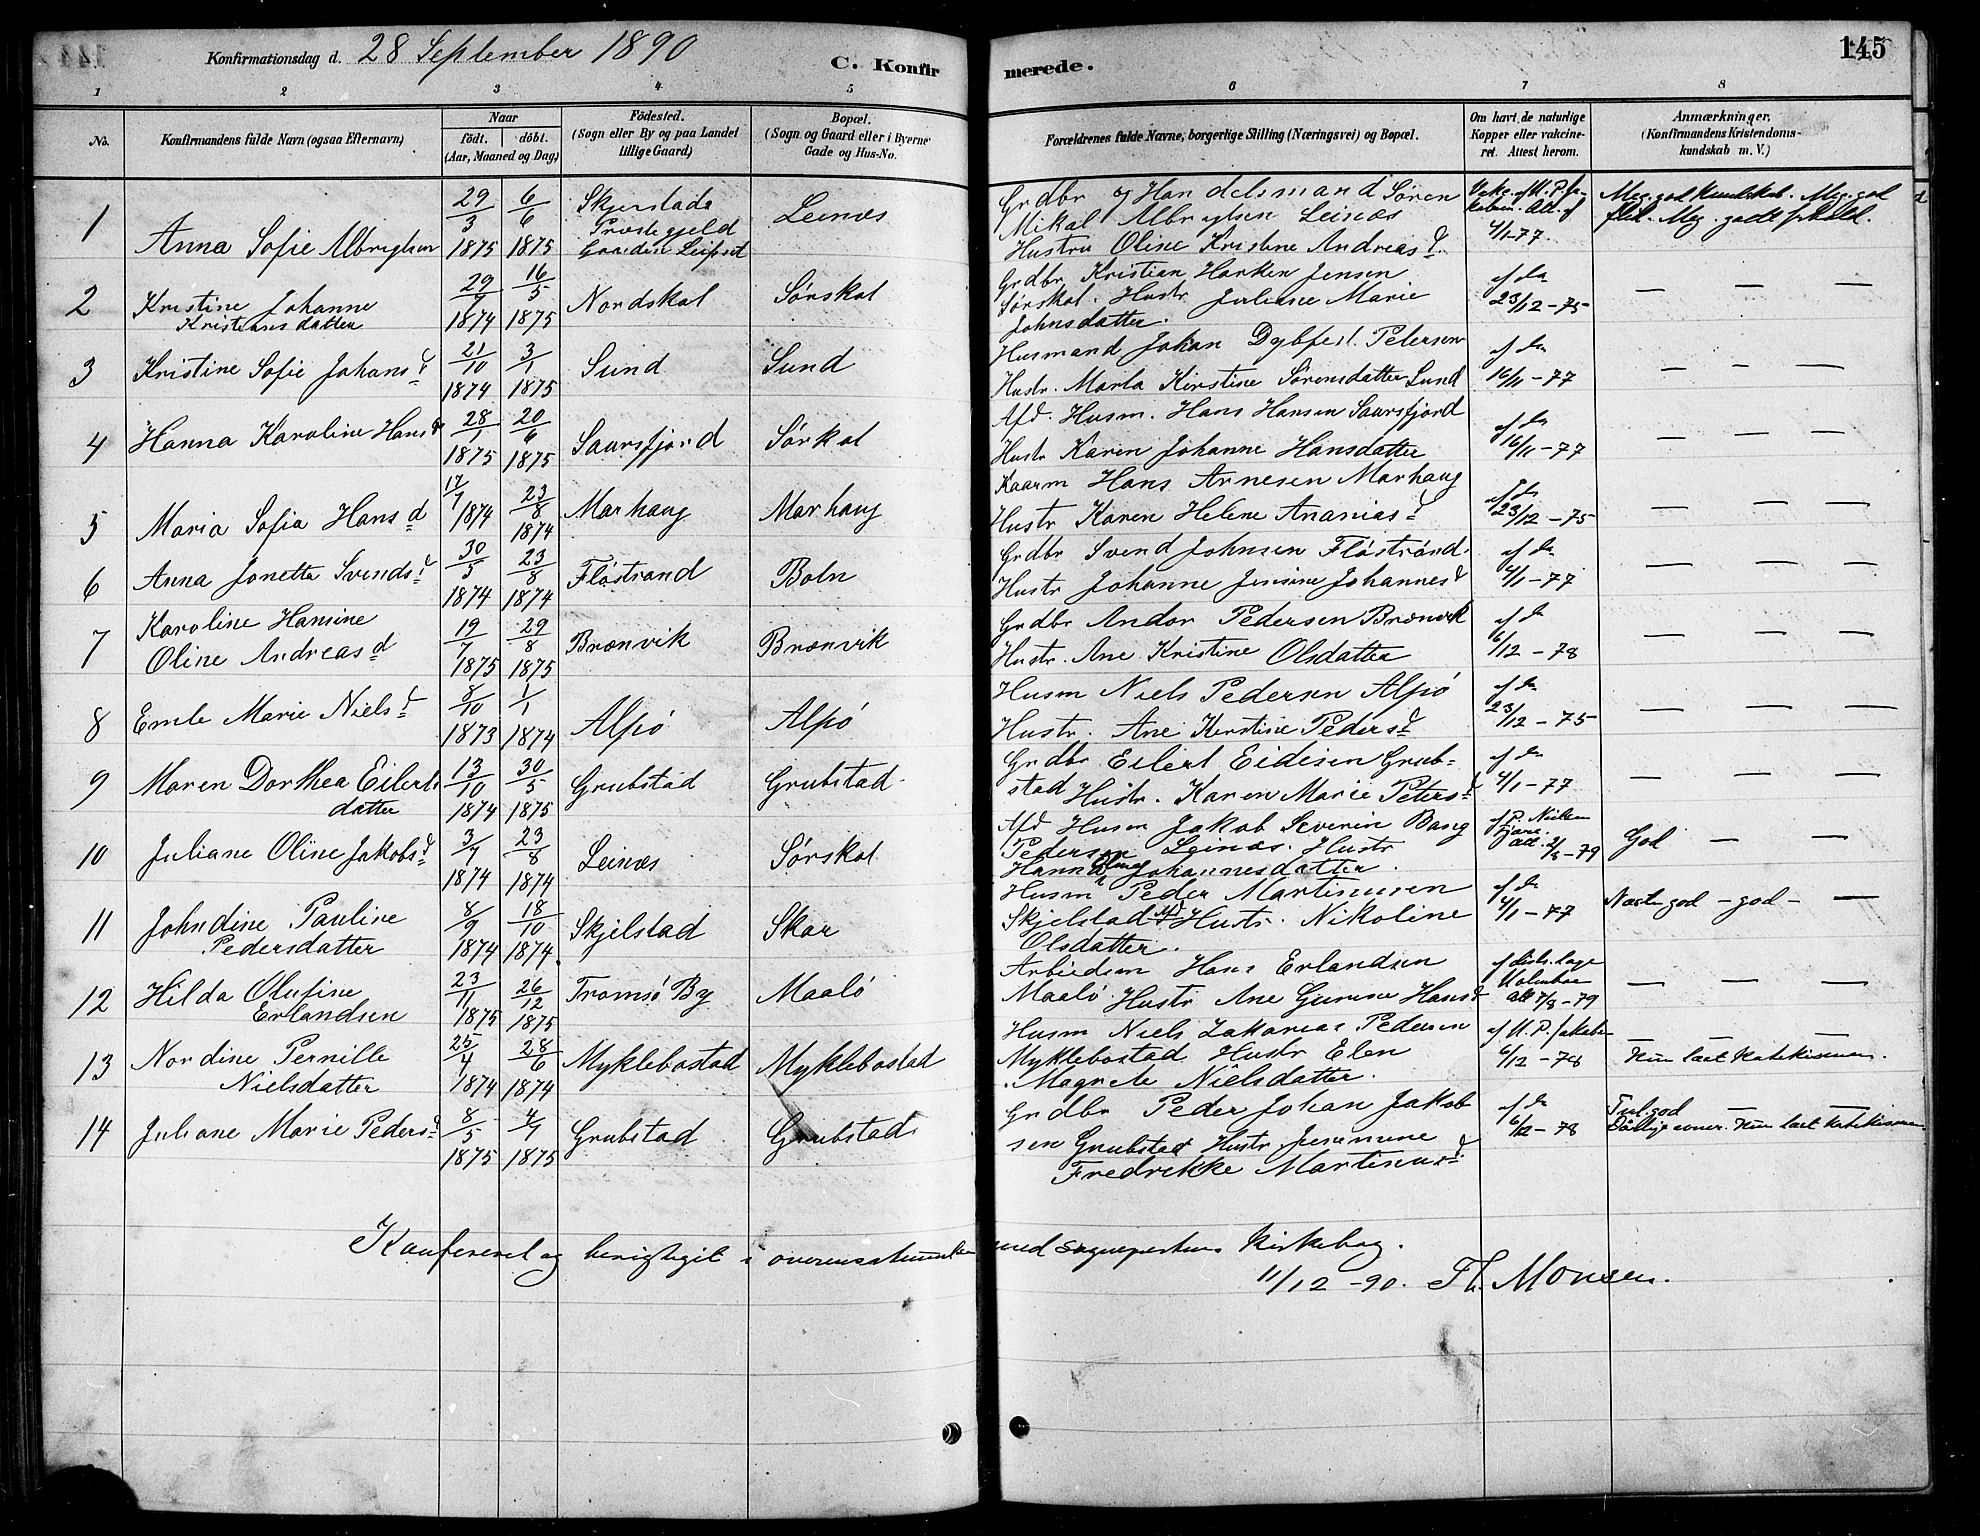 Konfirmationsdag d. 28 September 1890
C. Konfirmerede.
145
1 2 3 4 5 6 7 8
No.
Konfirmandens fulde Navn (ogsaa Efternavn)
Naar
födt. döbt.
(Aar, Maaned og Dag)
Födested.
(Sogn eller By og paa Landet tillige Gaard)
Bopæl.
(Sogn og Gaard eller i Byerne Gade og Hus-No.
Forældrenes fulde Navne, borgerlige Stilling (Næringsvei) og Bopæl.
Om havt de naturlige Kopper eller vakcineret. Attest herom.
Anmærkninger.
(Konfirmandens Kristendomskundskab m. V.)
1 Anna Sofie Albrigtsen 29/3 1875 6/6 1875 Skjerstads Præstegjeld Gaarden Leinæs
Grdbr og Handelsmand Søren
Mikal Albrigtsen Leinæs
Hustru Oline Kristine Andreasd.
4/1-77.
Meg. god Kundskab. Meg. god
flid. Meg. godt forhold.
2 Kristine Johanne
Kristiansdatter 29/7 1874 16/5 1875 Nordskot Sørskot
Grdbr Kristian Harken Jensen
Sørskot. Hustr. Juliane Marie
Johnsdatter.
af da
23/12-75
— — —
3 Kristine Sofie Johansd 21/10 1874 3/1 1875 Sund Sund
Husmand Johan Dybfest Petersen
Hustr. Marta Kirstine Sørensdatter Sund
af da
16/11-77
— — —
4 Hanna Karoline Hansd 28/1 1875 20/6 1875 Saursfjord Sørskot
Afd. Husm. Hans Hansen Saursfjord
Hustr Karen Johanne Hansdatter
af da
16/11-77
— — —
5 Maria Sofia Hansd 17/7 1874 23/8 1874 Marhaug Marhaug
Kaarm Hans Arnesen Marhaug
Hustr Karen Helene Ananiasd
af da
23/12-75
— — —
6 Anna Jonetta Svendsd 30/5 1874 23/8 1874 Fløstrand Boln
Grdbr Svend Johnsen Fløstrand.
Hustr Johanne Jensine Johannesd
af da
4/1-77
— — —
7 Karoline Hansine
Oline Andreasd 19/7 1875 29/8 1875 Brænvik Brænvik
Grdbr Andor Pedersen Brænvik
Hustr. Ane Kristine Olsdatter
af d
6/12-78
— — —
8 Emle Marie Nielsd 8/10 1873 1/1 1874 Alpø Alpø
Husm Niels Pedersen Alpø
Hustr. Ane Kirstine Pedersd
af da
23/12-75
— — —
9 Maren Dorthea Eilerts
datter 13/10 1874 30/5 1875 Grubstad Grubstad
Grdbr Eilert Eidisen Grubstad
Hustr. Karen Marie Petersd
af da
4/1-77
— — —
10 Juliane Oline Jakobsd 3/7 1874 23/8 1874 Leinæs Sørskot
Afd Husm Jakob Severin Bang
Pedersen Leinæs. Hustr
Hanna Johannesdatter.
af P. Nielsen
God — —
11 Johndine Pauline
Pedersdatter 8/9 1874 18/10 1874. Skjelstad Skar
Husm Peder Martinusen
Skjelstad Afd Hustr. Nikoline
Olsdatter.
af da
4/1-77
Næsten god - god - —
12 Hilda Olufine
Erlandsen 23/11 1875 26/12 1875 Tromsø By Maalø
Arbeidsm Hans Erlandsen
Maalø. Hustr Ane Hansd
7/8-79
— — —
13 Nordine Pernille
Nielsdatter 25/4 1874 28/6 1874 Myklebostad Myklebostad
Husm Niels Zakarias Pedersen
Myklebostad Hustr Elen
Magrete Nielsdatter.
af M. P. Jakobsen
6/12-78
— — —
Kun læst Katekismen.
14 Juliane Marie Pedersd 8/5 1875 4/7 1875 Grubstad Grubstad
Grdbr Peder Johan Jakobsen
Grubstad Hustr
Fredrikke Martinusd.
af da
6/12-78
Tul. god — —
Daarlige evner. Kun læst Katekismen
Konfereret og berigtiget i overensstemmelse med sogneprestens Kirkebog.
11/12-90. Th. Monsen.